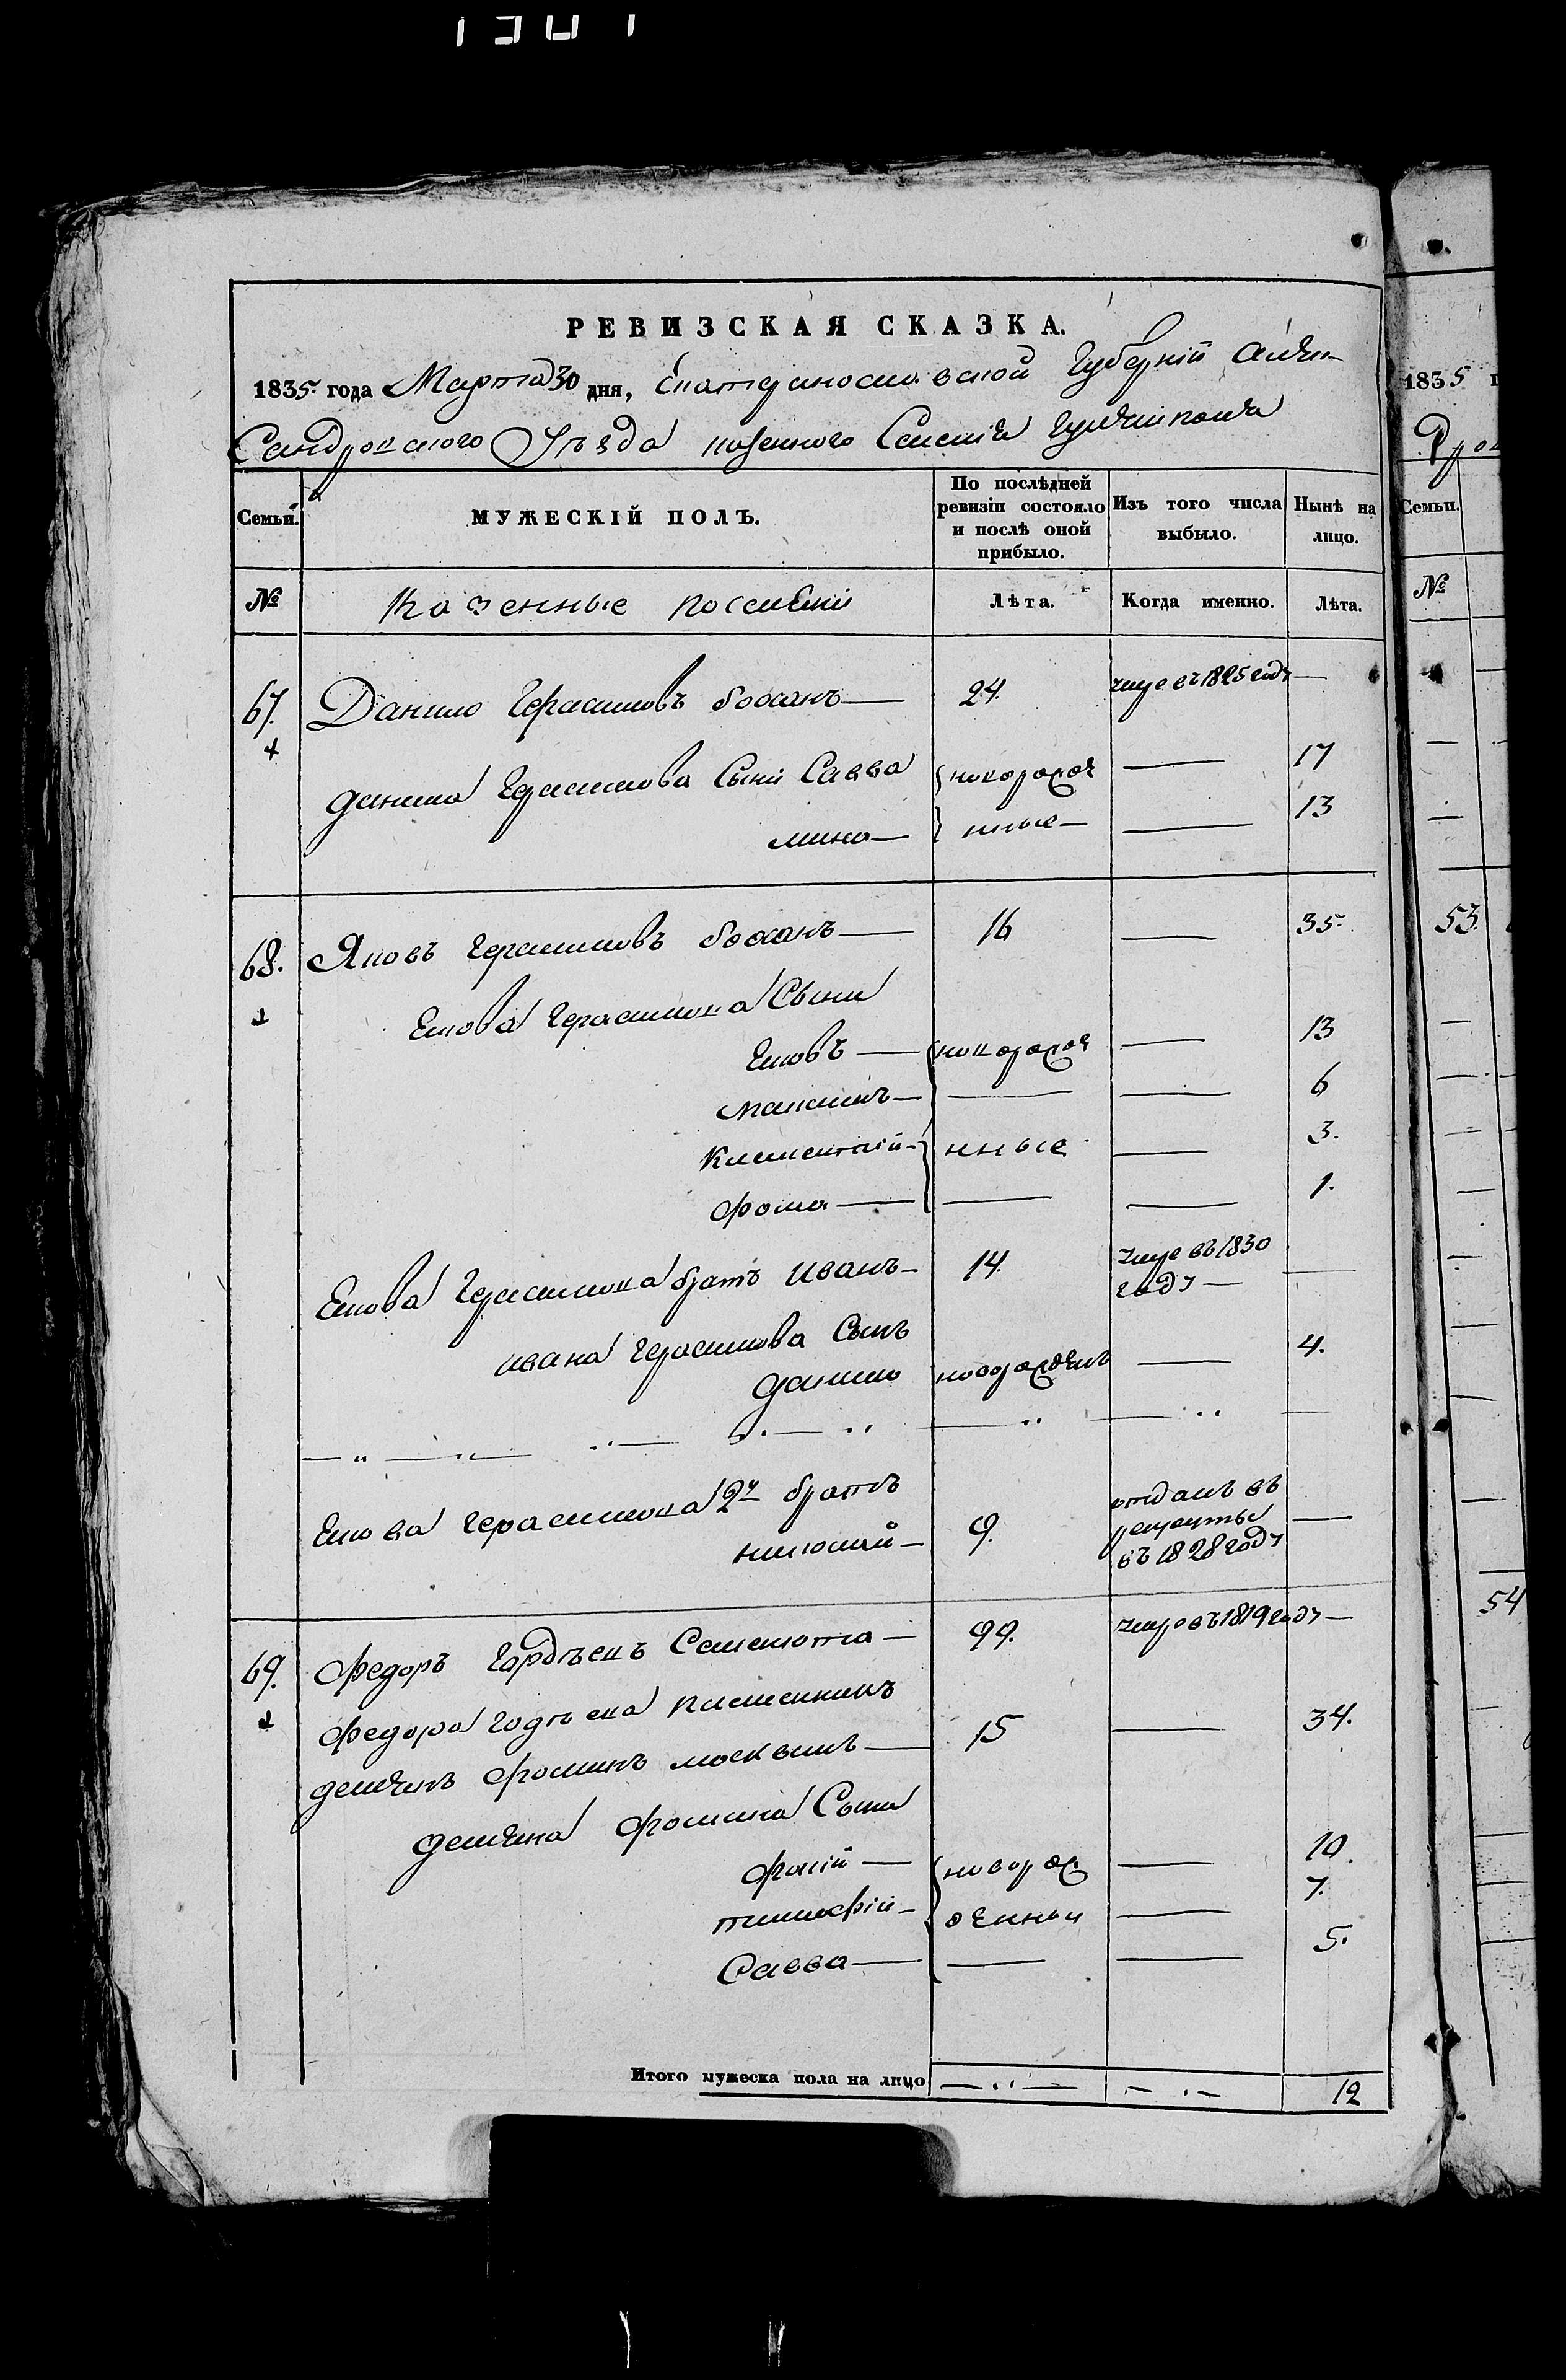 РЕВИЗСКАЯ СКАЗКА.
1835 года Марта 30 дня, Екатериносл​авской Губерніи Алек-
Сандровского Уезда казенного Селенія
Семьи. МУЖЕСКІЙ ПОЛЪ. По послѣдней ревизіи состояло и послѣ оной прибыло. Изъ того числа выбыло. Нынѣ на лицо.
№ Казенные поселяне Лѣта. Когда именно. Лѣта.
67. Данило Герасимовъ Божанъ — 24. умре въ 1825 году —
Данила Герасимова Сыни Савва новорожде — 17
мина — нные — — 13
68. Яковъ Герасимовъ Божанъ — 16 — 35.
Екова Герасимова Сыни
Ековъ — новорожде — 13
максимъ — — — 6
Климентій — нные — 3.
фома — — — 1.
Екова Герасимова братъ Иванъ — 14. умре въ 1830 году — —
ивана Герасимова Сынъ
данило новорожденъ — 4.
Екова Герасимова 2й братъ
николай — 9. отданъ въ рекруты въ 1828 году —
69. Федоръ Гордѣевъ — 99. умре въ 1819 году —
Федора Годѣева племеникъ
демянъ Фоминъ москвинъ — 15 — 34.
демяна фомина Сыни
фокій — новорож — 10.
тимофій — денныи — 7.
Савва — — — 5.
Итого мужеска пола на лицо 12
1835
Семьи.
№
53.
54